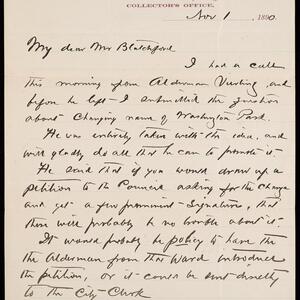 COLLECTOR'S OFFICE,
Nov 1 1890.
My dear Mr Blatchford
I had a call
this morning from Alderman and
before he left I submitted the question
about Changing name of Washington Park.
He was entirely taken with the idea, and
will gladly do all that he can to promote it.
He said that if you would draw up a
petition to the Council asking for the change
and get a few prominent Signatures, that
there will probably be no trouble about it.
It would probably be policy to have the
the Alderman from this Ward introduce
the petition, or it could be sent directly
to the City Clerk